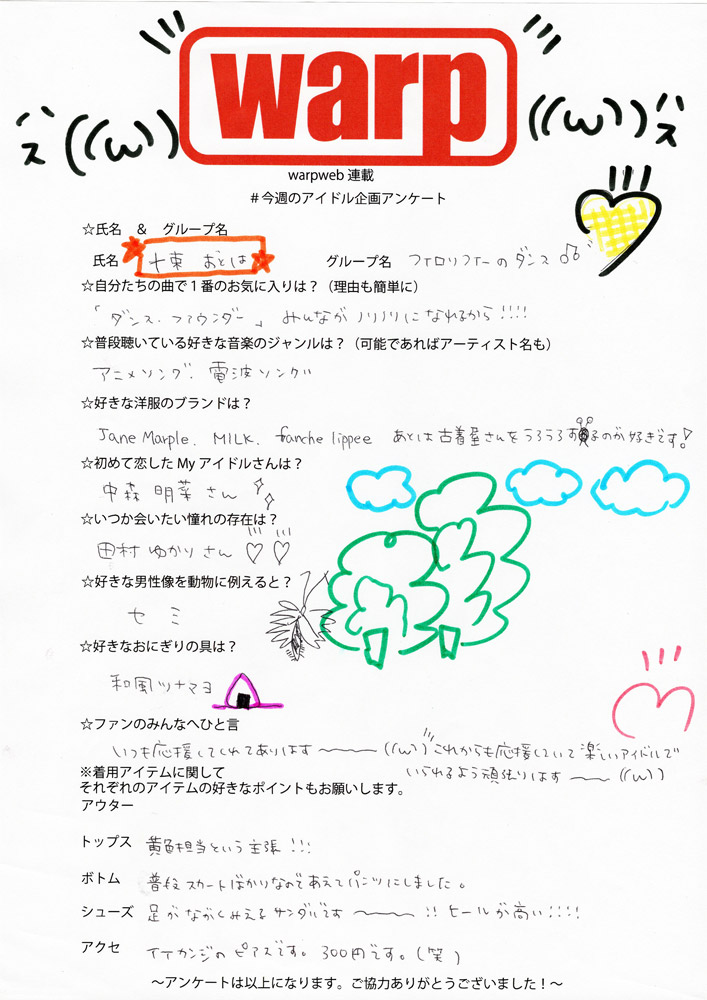 ミ ((ω)) warp ((ω)) ミ
warpweb 連載
#今週のアイドル企画アンケート
☆氏名 & グループ名
氏名 十束 おとは グループ名 フィロソフィーのダンス
☆自分たちの曲で1番のお気に入りは?(理由も簡単に)
「ダンス・ファウンダー」 みんながノリノリになれるから!!!!
☆普段聴いている好きな音楽のジャンルは?(可能であればアーティスト名も)
アニメソング、電波ソング
☆好きな洋服のブランドは?
Jane Marple. MILK. fanche lippee あとは古着屋さんをうろうろするのが好きです!
☆初めて恋した My アイドルさんは?
中森 明菜 さん
☆いつか会いたい憧れの存在は?
田村 ゆかり さん ♡♡
☆好きな男性像を動物に例えると?
セミ
☆好きなおにぎりの具は?
和風ツナマヨ
☆ファンのみんなへひと言
いつも応援してくれてありがとうございます〜〜 ((ω)) これからも応援していて楽しいアイドルで
いられるよう頑張ります〜〜 ((ω))
※着用アイテムに関して
それぞれのアイテムの好きなポイントもお願いします。
アウター
トップス 黄色担当という主張!!!
ボトム 普段スカートばかりなのであえてパンツにしました。
シューズ 足がながくみえるサンダルです〜〜!! ヒールが高い!!!!
アクセ イイカンジのピアスです。300円です。(笑)
〜アンケートは以上になります。ご協力ありがとうございました!〜